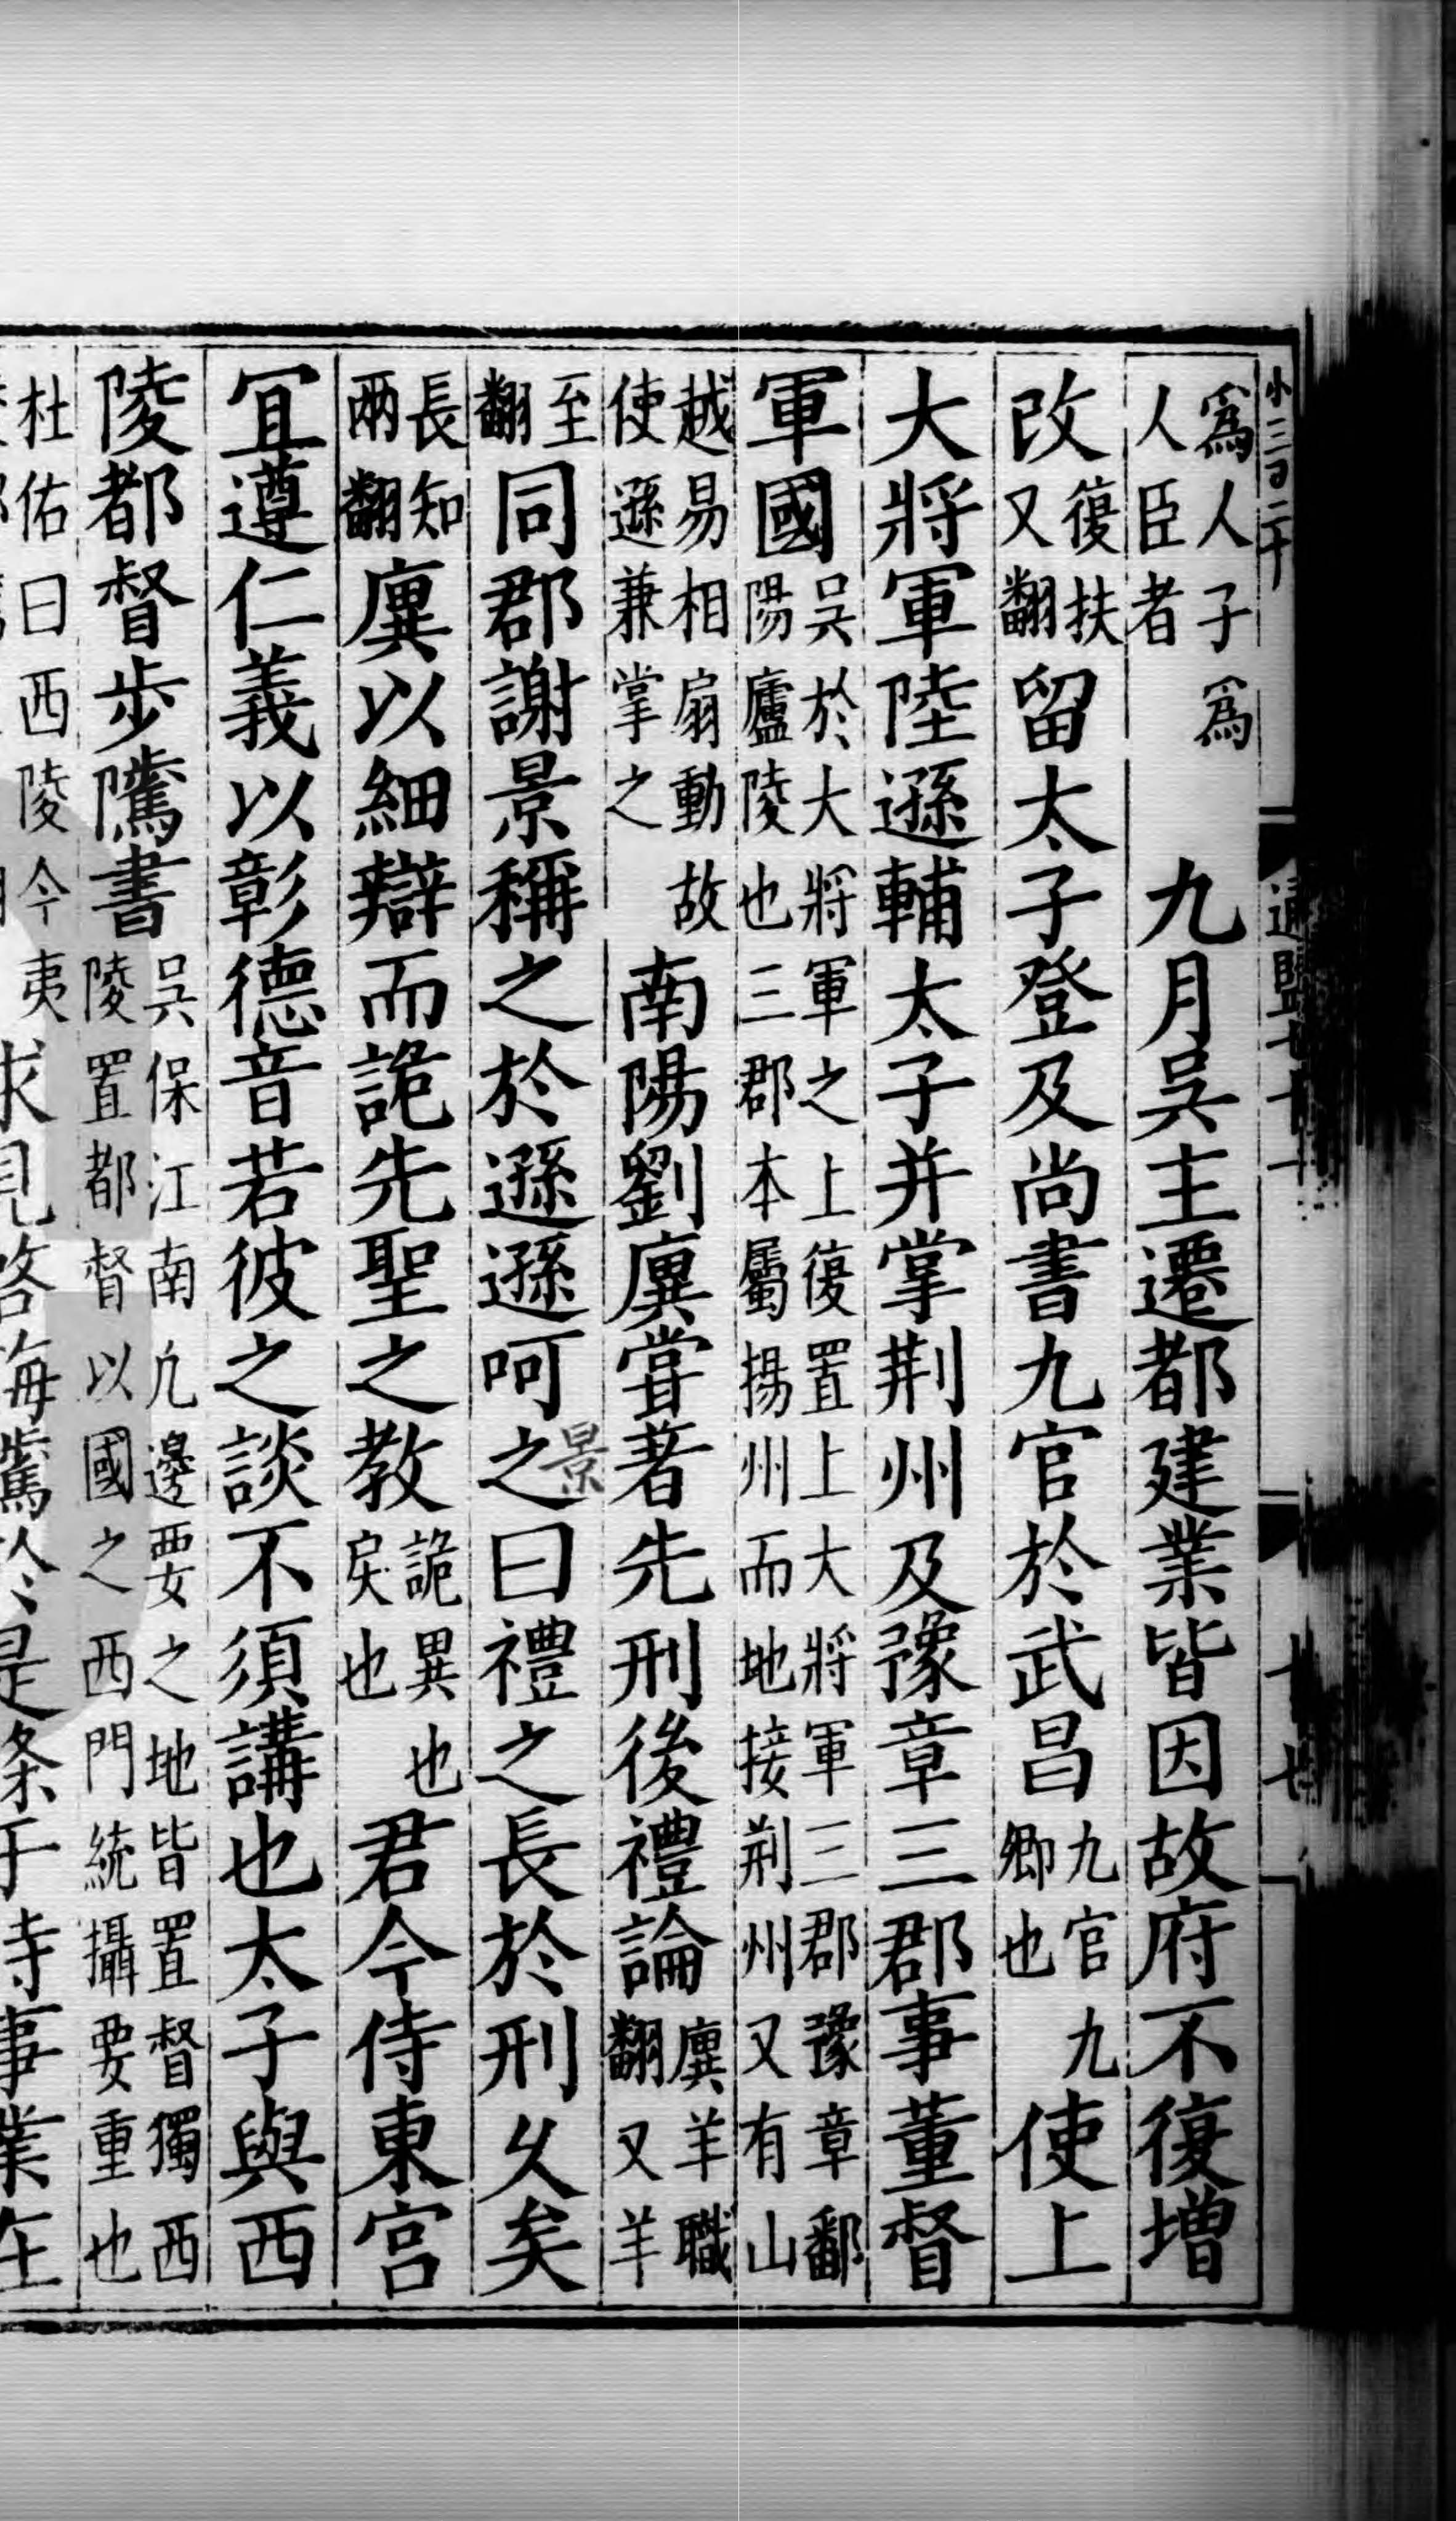 小三百二十 通鑑七十一 十七
爲人子爲人臣者九月吳主遷都建業皆因故府不復增
改復扶又翻留太子登及尚書九官於武昌九官九卿也使上
大將軍陸遜輔太子并掌荆州及豫章三郡事董督
軍國吳於大將軍之上復置上大將軍三郡豫章鄱陽廬陵也三郡本屬揚州而地接荆州又有山
越易相扇動故使遜兼掌之南陽劉廙嘗著先刑後禮論廙羊職翻又羊
至翻同郡謝景稱之於遜遜呵之曰禮之長於刑久矣
景
長知兩翻廙以細辯而詭先聖之教詭異也戾也君今侍東宮
宜遵仁義以彰德音若彼之談不須講也太子與西
陵都督步騭書吳保江南凡邊要之地皆置督獨西陵置都督以國之西門統攝要重也
杜佑曰西陵今夷求見啓誨騭於是条于時事業在